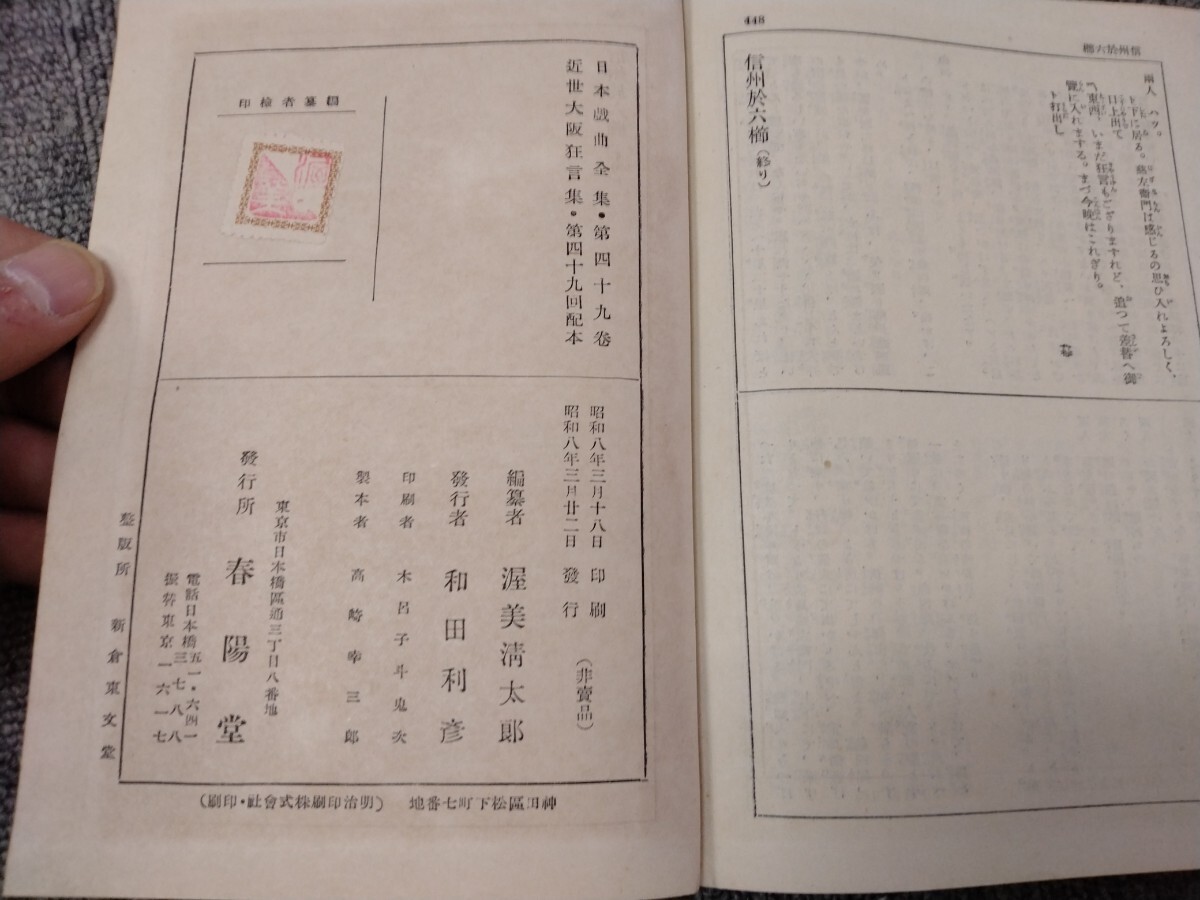 448
信州於六櫛
兩人 ハツ。
ト下に居る。
日上出て
東西、いまだ狂言もござりますれど、追つて差替へ御
覽に入れまする。まづ今晩はこれぎり。
ト打出し
幕
信州於六櫛(終り)
日本戯曲全集・第四十九卷
近世大阪狂言集・第四十九回配本
編纂者檢印
昭和八年三月十八日 印刷
昭和八年三月廿二日 發行
(非賣品)
編纂者 渥美淸太郎
發行者 和田利彦
印刷者 木呂子斗鬼次
製本者 高崎幸三郎
東京市日本橋區通三丁目八番地
發行所 春陽堂
電話日本橋五一・六四一
振替東京一六一七
整版所 新倉東文堂
神田區松下町七番地 (明治印刷株式會社・印刷)